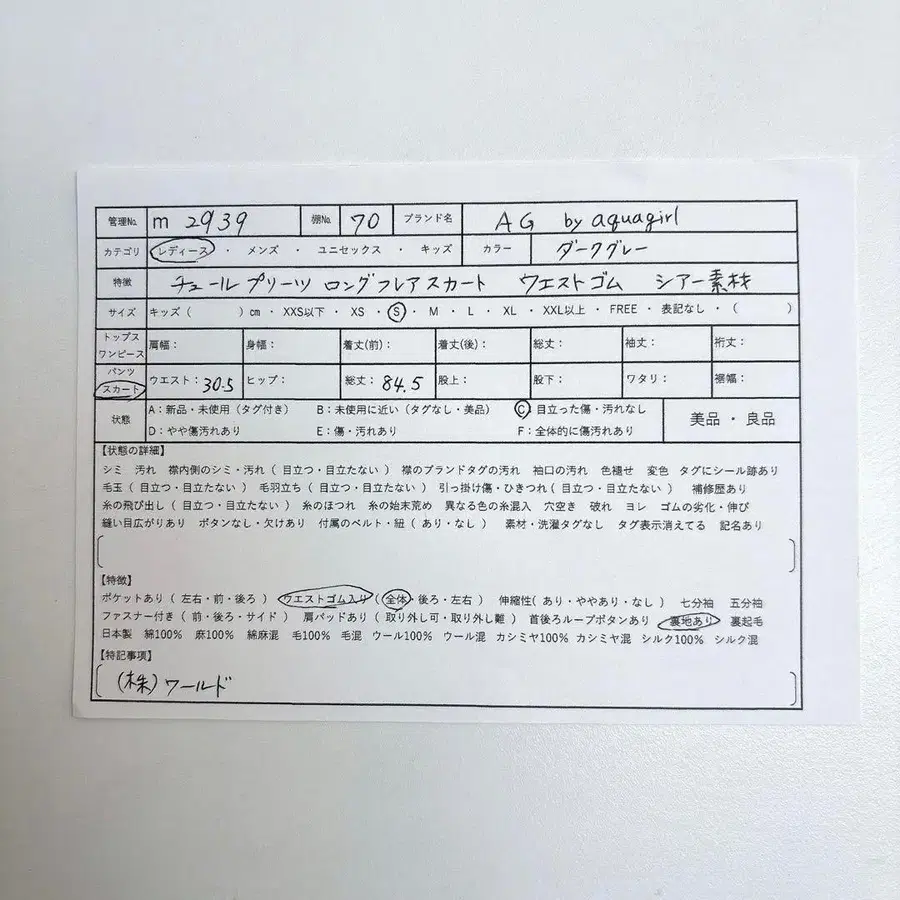 管理No. m 2939 棚No. 70 ブランド名 AG by aquagirl
カテゴリ レディース ・ メンズ ・ ユニセックス ・ キッズ カラー ダークグレー
特徴 チュールプリーツ ロングフレアスカート ウエストゴム シアー素材
サイズ キッズ ( ) cm ・ XXS以下 ・ XS ・ S ・ M ・ L ・ XL ・ XXL以上 ・ FREE ・ 表記なし ・ ( )
トップス ワンピース 肩幅: 身幅: 着丈(前): 着丈(後): 総丈: 袖丈: 裄丈:
パンツ スカート ウエスト: 30.5 ヒップ: 総丈: 84.5 股上: 股下: ワタリ: 裾幅:
状態 A:新品・未使用(タグ付き) B:未使用に近い(タグなし・美品) C:目立った傷・汚れなし 美品 ・ 良品
D:やや傷汚れあり E:傷・汚れあり F:全体的に傷汚れあり
【状態の詳細】
シミ 汚れ 襟内側のシミ・汚れ(目立つ・目立たない) 襟のブランドタグの汚れ 袖口の汚れ 色褪せ 変色 タグにシール跡あり
毛玉(目立つ・目立たない) 毛羽立ち(目立つ・目立たない) 引っ掛け傷・ひきつれ(目立つ・目立たない) 補修歴あり
糸の飛び出し(目立つ・目立たない) 糸のほつれ 糸の始末荒め 異なる色の糸混入 穴空き 破れ ヨレ ゴムの劣化・伸び
縫い目広がりあり ボタンなし・欠けあり 付属のベルト・紐(あり・なし) 素材・洗濯タグなし タグ表示消えてる 記名あり
【特徴】
ポケットあり(左右・前・後ろ) ウエストゴム入り(全体・後ろ・左右) 伸縮性(あり・ややあり・なし) 七分袖 五分袖
ファスナー付き(前・後ろ・サイド) 肩パッドあり(取り外し可・取り外し難) 首後ろループボタンあり 裏地あり 裏起毛
日本製 綿100% 麻100% 綿麻混 毛100% 毛混 ウール100% ウール混 カシミヤ100% カシミヤ混 シルク100% シルク混
【特記事項】
(株)ワールド